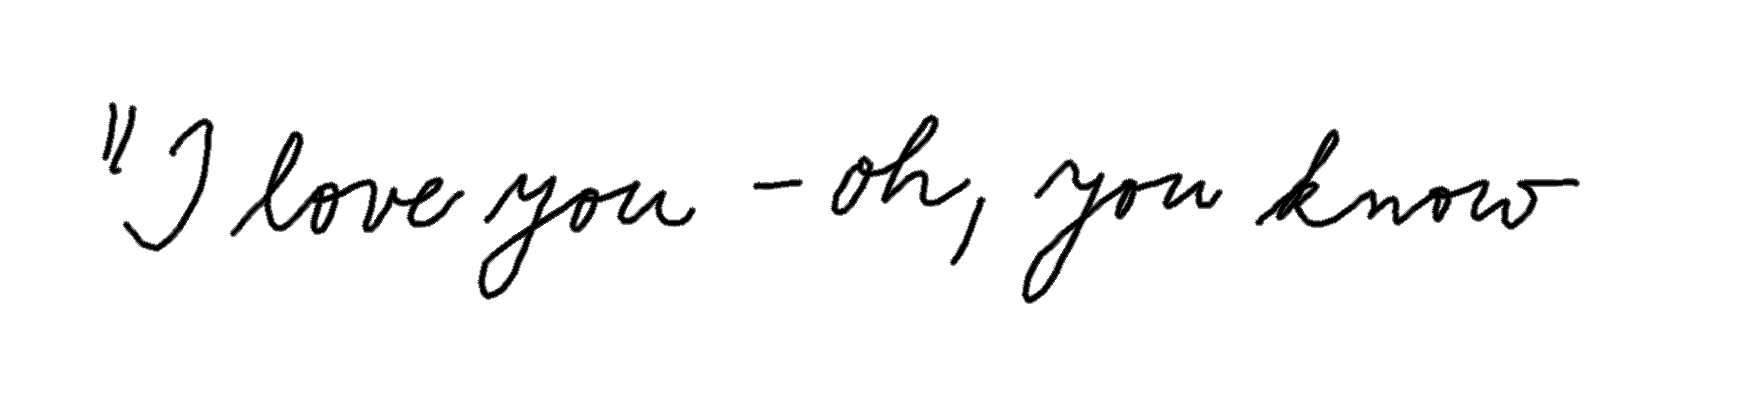 "I love you – oh, you know